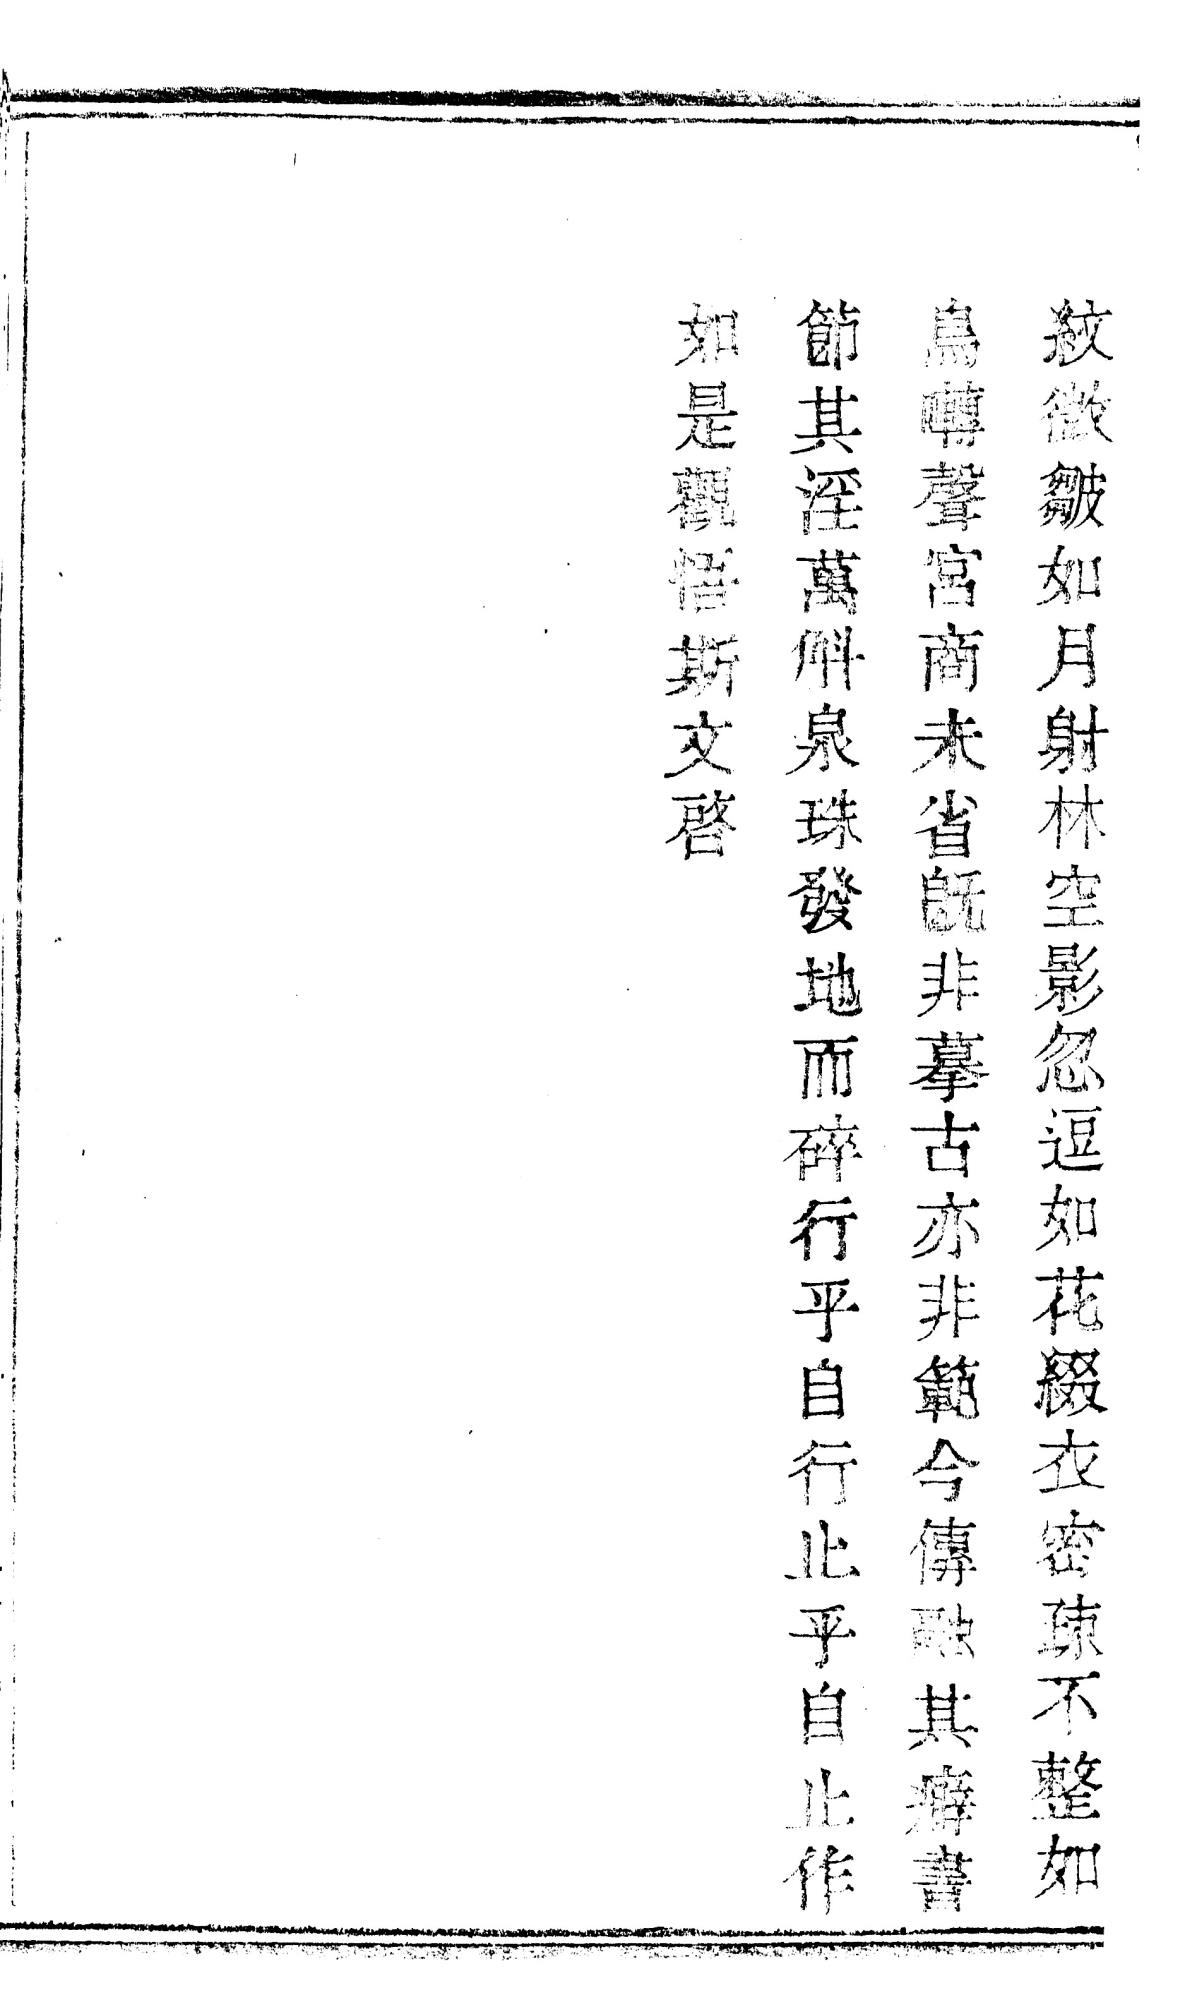 紋微皺如月射林空影忽逗如花綴衣密疎不整如
鳥囀聲宮商未省旣非摹古亦非範今傳融其癖書
節其淫萬斛泉珠發地而碎行乎自行止乎自止作
如是觀悟斯文啓